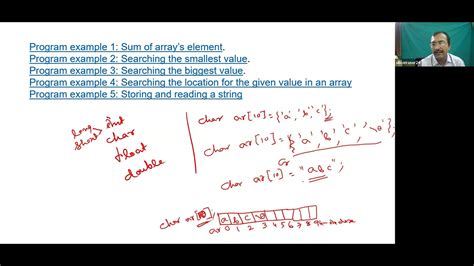 Program example 1: Sum of array's element.
Program example 2: Searching the smallest value.
Program example 3: Searching the biggest value.
Program example 4: Searching the location for the given value in an array
Program example 5: Storing and reading a string
long
short > int
char
float
double
char ar[10] = {'a', 'b', 'c'};
char ar[10] = {'a', 'b', 'c', '\0'};
Or
char ar[10] = "abc";
char ar[10]
a b c \0
ar 0 1 2 3 4 5 6 7 8 9 ← index